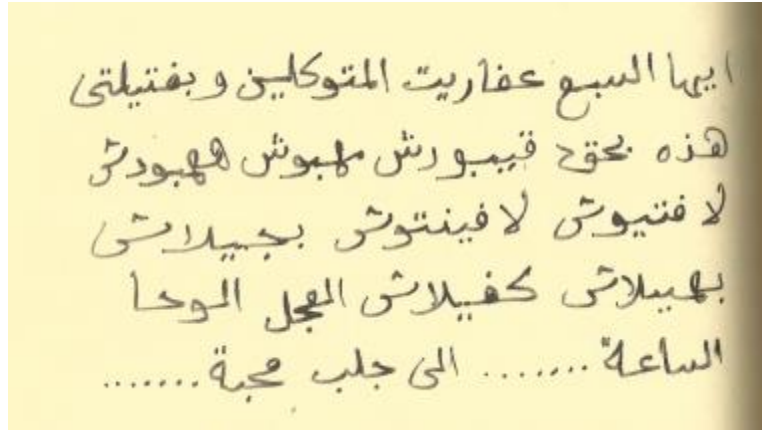 ايها السبع عفاريت المتوكلين وبفتيلتى
هذه بحق قيبورش مهبوش ههبودش
لا فتيوش لا فينتوش بجيلاش
بهيلاش كفيلاش العجل الوحا
الساعة ........ الى جلب محبة .......